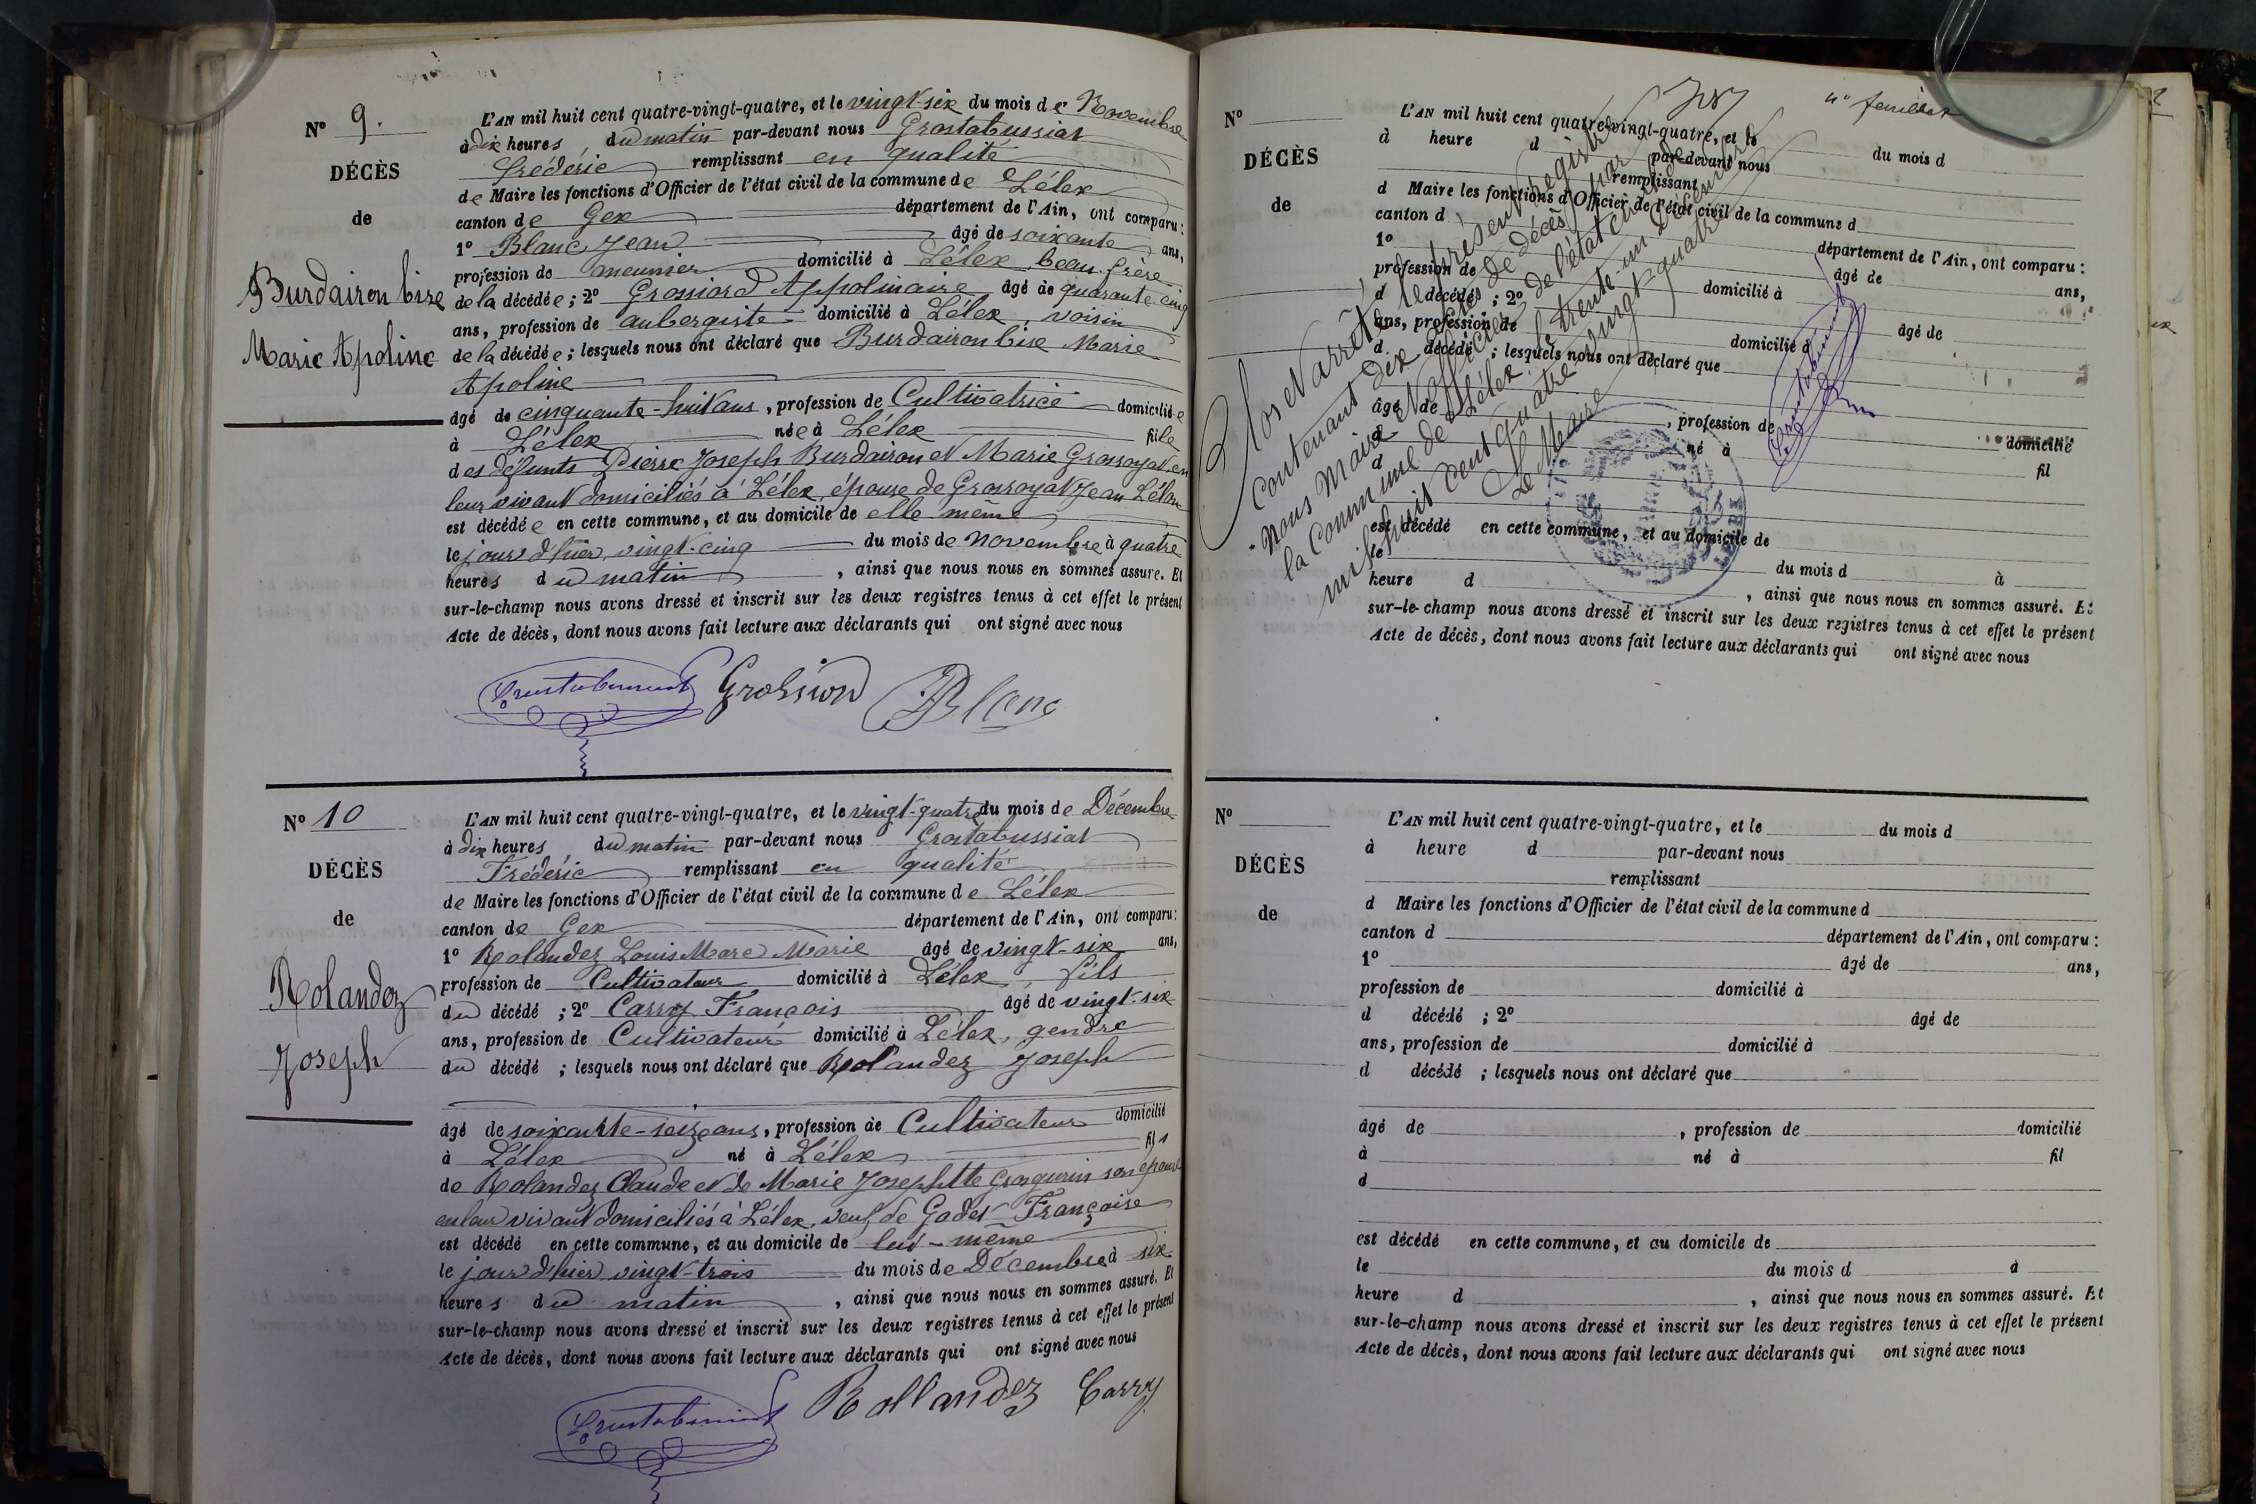 N° 9.
DÉCÈS
de
Burdairon bize
Marie Apoline
L'AN mil huit cent quatre-vingt-quatre, et le vingt-six du mois de Novembre
à dix heures du matin par-devant nous Grostabussiat
Frédéric remplissant en qualité
de Maire les fonctions d'Officier de l'état civil de la commune de Lélex
canton de Gex département de l'Ain, ont comparu :
1° Blanc Jean âgé de soixante ans,
profession de meunier domicilié à Lélex, beau-frère
de la décédée ; 2° Grossiord Appolinaire âgé de quarante-cinq
ans, profession de aubergiste domicilié à Lélex, voisin
de la décédée ; lesquels nous ont déclaré que Burdaironbise Marie
Apoline
âgé de cinquante-huit ans, profession de Cultivatrice domiciliée
à Lélex née à Lélex fille
des défunts Pierre Joseph Burdairon et Marie Grosroyat en
leur vivant domiciliés à Lélex, épouse de Grosroyat Jean
est décédée en cette commune, et au domicile de elle même
le jour d'hier, vingt-cinq du mois de novembre à quatre
heures du matin, ainsi que nous nous en sommes assuré. Et
sur-le-champ nous avons dressé et inscrit sur les deux registres tenus à cet effet le présent
Acte de décès, dont nous avons fait lecture aux déclarants qui ont signé avec nous
Grostabussiat Grossiord Blanc
N° 10
DÉCÈS
de
Rolandez
Joseph
L'AN mil huit cent quatre-vingt-quatre, et le vingt-quatre du mois de Décembre
à dix heures du matin par-devant nous Grostabussiat
Frédéric remplissant en qualité
de Maire les fonctions d'Officier de l'état civil de la commune de Lélex
canton de Gex département de l'Ain, ont comparu :
1° Rolandez Louis Marc Marie âgé de vingt-six ans,
profession de Cultivateur domicilié à Lélex, fils
du décédé ; 2° Carry François âgé de vingt-six
ans, profession de Cultivateur domicilié à Lélex, gendre
du décédé ; lesquels nous ont déclaré que Rolandez Joseph
âgé de soixante-seize ans, profession de Cultivateur domicilié
à Lélex né à Lélex fils
de Rolandez Claude et de Marie Josephtte Grosgurin son épouse
en leur vivant domiciliés à Lélex, veuf de Godet Françoise
est décédé en cette commune, et au domicile de lui-même
le jour d'hier, vingt-trois du mois de Décembre à six
heures du matin, ainsi que nous nous en sommes assuré. Et
sur-le-champ nous avons dressé et inscrit sur les deux registres tenus à cet effet le présent
Acte de décès, dont nous avons fait lecture aux déclarants qui ont signé avec nous
Grostabussiat Rollandez Carry
N°
DÉCÈS
de
L'AN mil huit cent quatre-vingt-quatre, et le du mois d
à heure d par-devant nous
remplissant
d Maire les fonctions d'Officier de l'état civil de la commune d
canton d département de l'Ain, ont comparu :
1° âgé de ans,
profession de domicilié à
d décédé ; 2° âgé de
ans, profession de domicilié à
d décédé ; lesquels nous ont déclaré que
âgé de , profession de domicilié
à né à fil
d
est décédé en cette commune, et au domicile de
le du mois d à
heure d , ainsi que nous nous en sommes assuré. Et
sur-le-champ nous avons dressé et inscrit sur les deux registres tenus à cet effet le présent
Acte de décès, dont nous avons fait lecture aux déclarants qui ont signé avec nous
Clos et arrêté le présent registre
contenant dix actes de décès, par
nous Maire et officier de l'état civil de
la Commune de Lélex, le trente-un Décembre
mil huit cent quatre vingt-quatre
Le Maire
Grostabussiat
N°
DÉCÈS
de
L'AN mil huit cent quatre-vingt-quatre, et le du mois d
à heure d par-devant nous
remplissant
d Maire les fonctions d'Officier de l'état civil de la commune d
canton d département de l'Ain, ont comparu :
1° âgé de ans,
profession de domicilié à
d décédé ; 2° âgé de
ans, profession de domicilié à
d décédé ; lesquels nous ont déclaré que
âgé de , profession de domicilié
à né à fil
d
est décédé en cette commune, et au domicile de
le du mois d à
heure d , ainsi que nous nous en sommes assuré. Et
sur-le-champ nous avons dressé et inscrit sur les deux registres tenus à cet effet le présent
Acte de décès, dont nous avons fait lecture aux déclarants qui ont signé avec nous